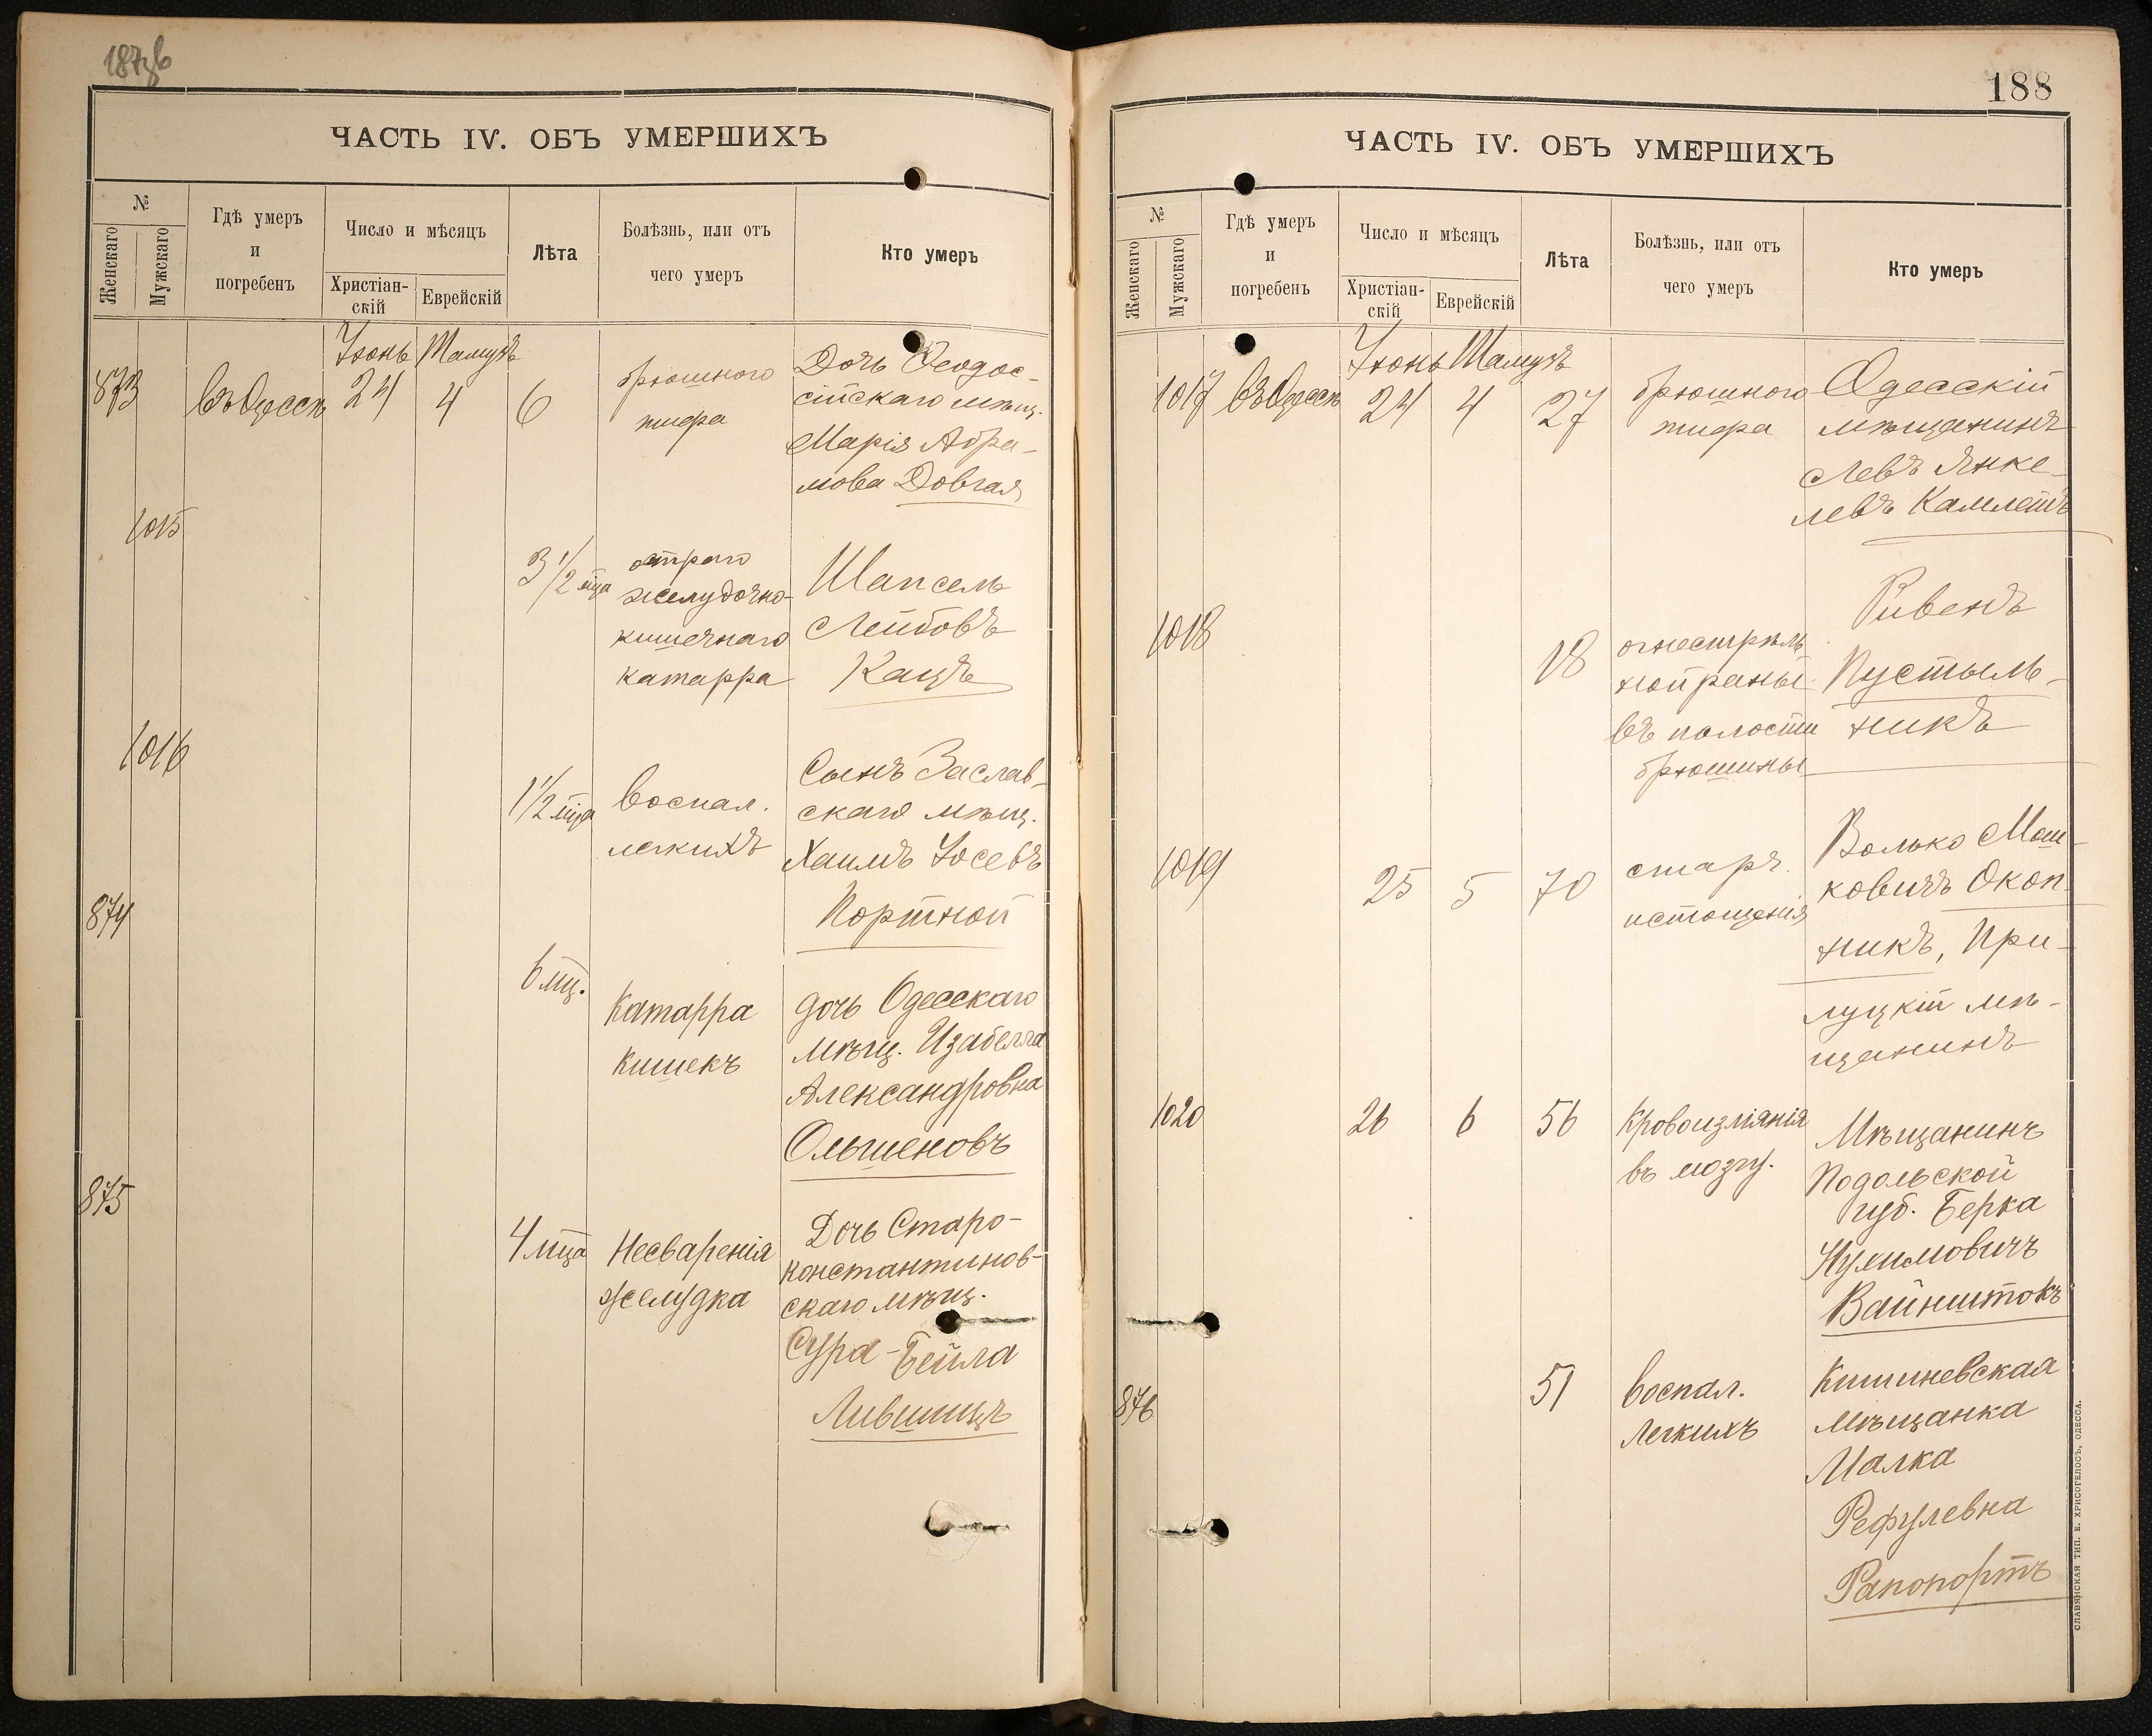 187зв
ЧАСТЬ IV. ОБЪ УМЕРШИХЪ
№
Женскаго
Мужскаго
Гдѣ умеръ
и
погребенъ
Число и мѣсяцъ
Христіан-
скій
Еврейскій
Лѣта
Болѣзнь, или отъ
чего умеръ
Кто умеръ
Іюнь Тамузъ
873 въ Одессѣ 24 4 6
брюшного
тифа
Дочь Ѳеодос-
сійскаго мѣщ.
Марія Абра-
мова Довгая
1015
3 1/2 мца
остраго
желудочно-
кишечнаго
катарра
Шапсель
Лейбовъ
Кацъ
1016
1 1/2 мца
воспал.
легкихъ
Сынъ Заслав-
скаго мѣщ.
Хаимъ Іосевъ
Портной
874
6 мц.
Катарра
кишекъ
дочь Одесскаго
мѣщ. Изабелла
Александровна
Ольшеновъ
875
4 мца
Несваренія
желудка
Дочь Старо-
константинов-
скаго мѣщ.
Сура-Бейла
Лившицъ
188
ЧАСТЬ IV. ОБЪ УМЕРШИХЪ
№
Женскаго
Мужскаго
Гдѣ умеръ
и
погребенъ
Число и мѣсяцъ
Христіан-
скій
Еврейскій
Лѣта
Болѣзнь, или отъ
чего умеръ
Кто умеръ
Іюнь Тамузъ
1017 въ Одессѣ 24 4 27
брюшного
тифа
Одесскій
мѣщанинъ
Левъ Янке-
левъ Камлетъ
1018
18
огнестрѣль
ной раны
въ полости
брюшины
Ривенъ
Пустыль-
никъ
1019
25 5 70
старч.
истощенія
Волько Мош-
ковичъ Окоп-
никъ, При-
луцкій мѣ-
щанинъ
1020 26 6 56
Кровоизліянія
въ мозгу.
Мѣщанинъ
Подольской
губ. Берка
Нухимовичъ
Вайнштокъ
876
51
воспал.
Легкихъ
Кишиневская
мѣщанка
Малка
Рефулевна
Рапопортъ
СЛАВЯНСКАЯ ТИП. Е. ХРИСОГЕЛОСЪ, ОДЕССА.